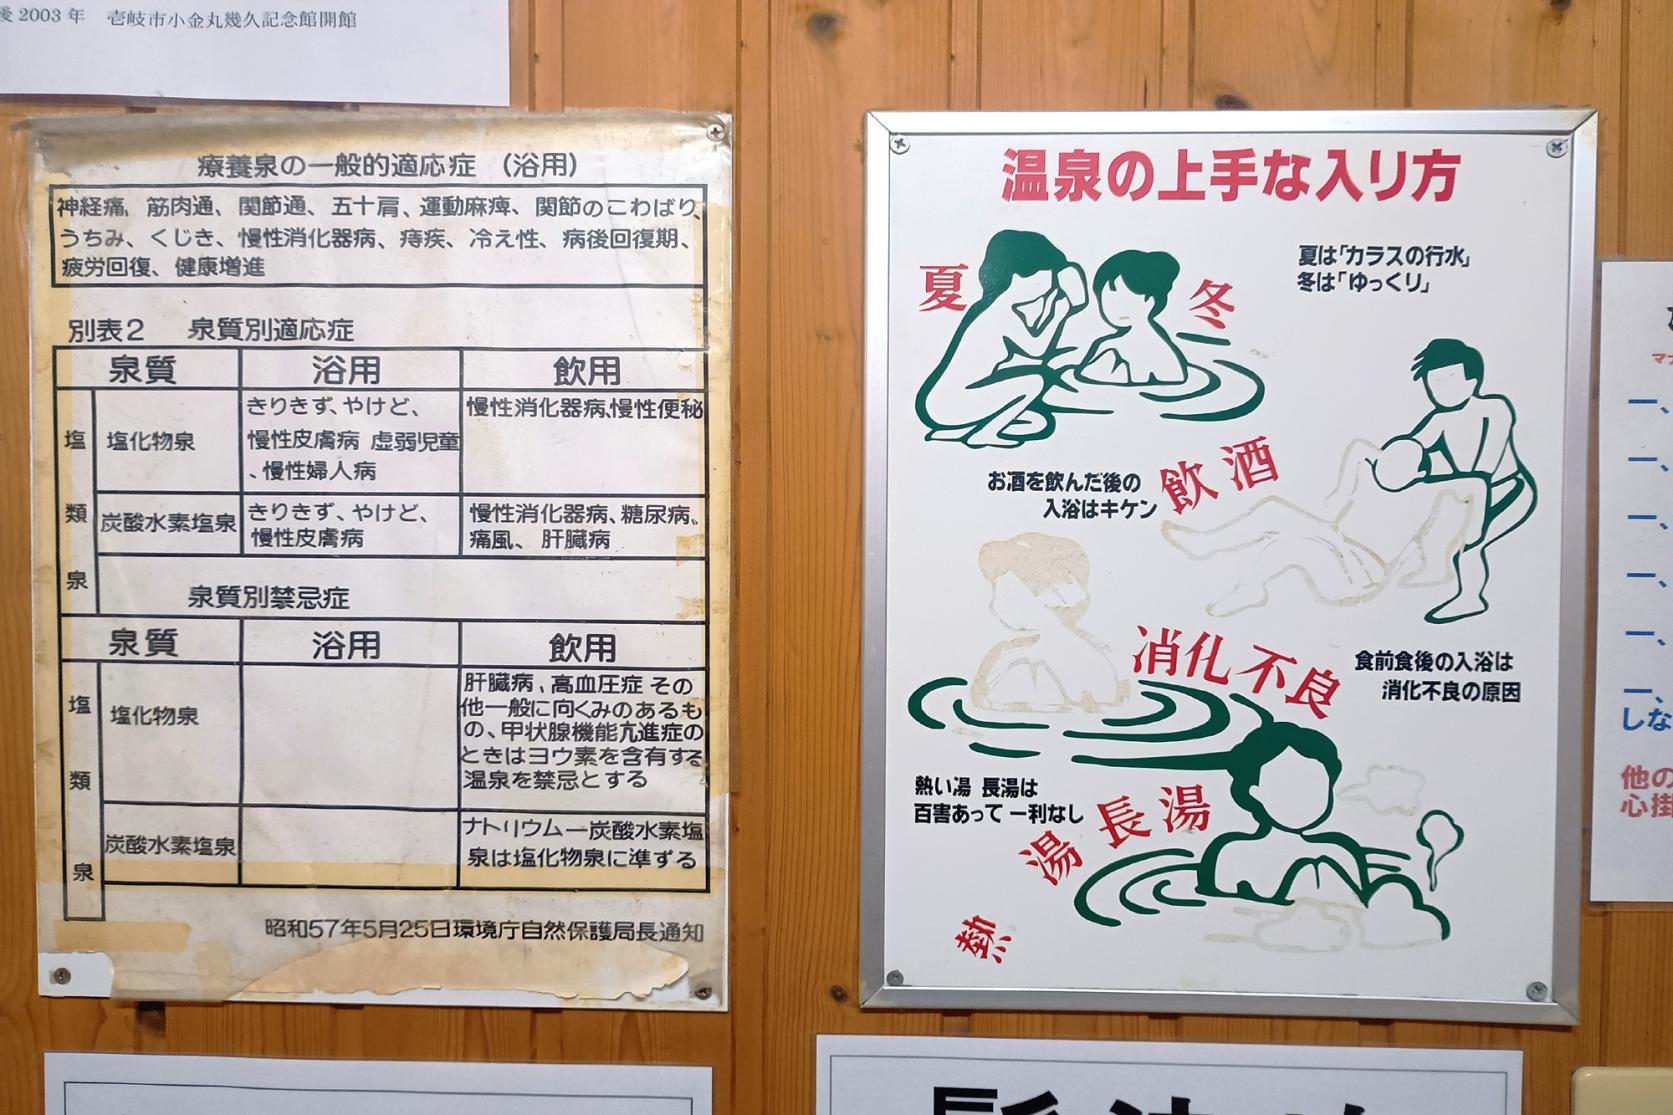 後2003年　壱岐市小金丸幾久記念館開館
療養泉の一般的適応症（浴用）
神経痛、筋肉通、関節通、五十肩、運動麻痺、関節のこわばり、
うちみ、くじき、慢性消化器病、痔疾、冷え性、病後回復期、
疲労回復、健康増進
別表2　泉質別適応症
泉質　浴用　飲用
塩類泉
塩化物泉
きりきず、やけど、
慢性皮膚病 虚弱児童
、慢性婦人病
慢性消化器病、慢性便秘
炭酸水素塩泉
きりきず、やけど、
慢性皮膚病
慢性消化器病、糖尿病、
痛風、肝臓病
泉質別禁忌症
泉質　浴用　飲用
塩類泉
塩化物泉
肝臓病、高血圧症 その
他一般に向くみのあるも
の、甲状腺機能亢進症の
ときはヨウ素を含有する
温泉を禁忌とする
炭酸水素塩泉
ナトリウム一炭酸水素塩
泉は塩化物泉に準ずる
昭和57年5月25日環境庁自然保護局長通知
温泉の上手な入り方
夏
冬
夏は「カラスの行水」
冬は「ゆっくり」
飲酒
お酒を飲んだ後の
入浴はキケン
消化不良
食前食後の入浴は
消化不良の原因
熱い湯 長湯は
百害あって一利なし
長湯
熱
湯
マナ
一、
一、
一、
一、
一、
一、
しな
他の
心掛